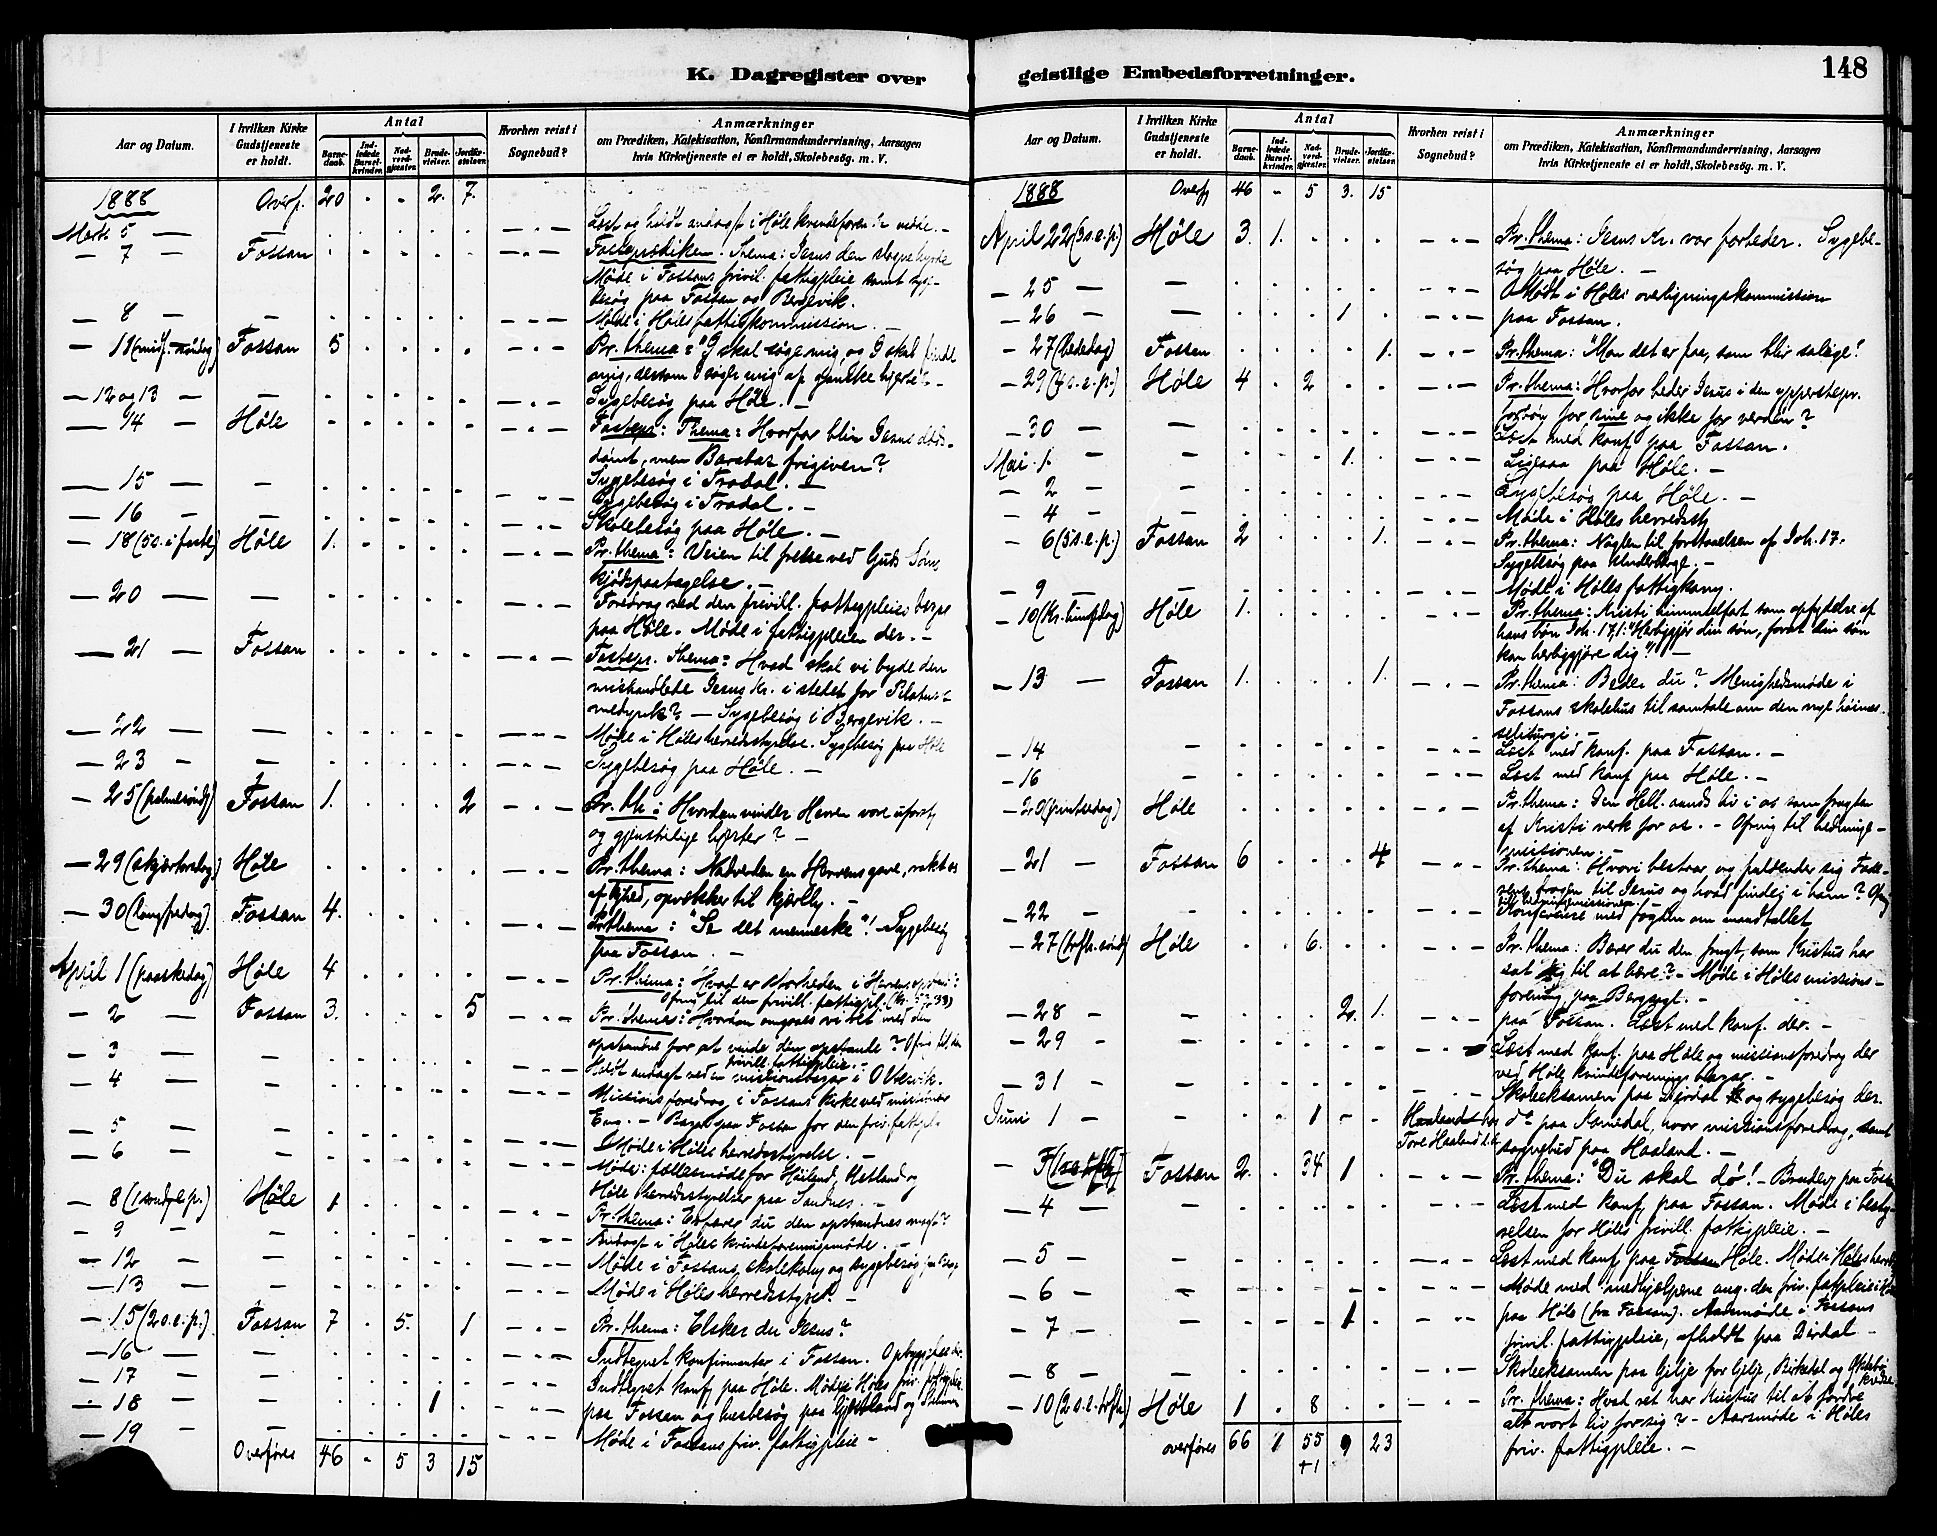 148
K. Dagregister over geistlige Embedsforretninger.
Aar og Datum.
I hvilken Kirke Gudstjeneste er holdt.
Antal
Barnedaab.
Indledede Barselkvinder.
Nadverdgjæster.
Brudevielser.
Jordfæstelser.
Hvorhen reist i Sognebud?
Anmærkninger
om Prædiken, Katekisation, Konfirmandundervisning, Aarsagen
hvis Kirketjeneste ei er holdt, Skolebesøg. m. V.
1888 Overf. 20 . . 2. 7.
Marts 5 — — Læst og holdt andagt i Høle kvindeforen.
— 7 — Fossan Fasteprædiken. Thema: Jesus den slagne hyrde
Møde i Fossans frivil. fattigpleie samt syge-
besøg paa Fossan og Bergevik.
— 8 — — Møde i Høles fattigkommission. —
— 11 (midf. søndag) Fossan 5 Pr. thema: "I skal søge mig, og I skal finde
mig, dersom I søge mig af ganske hjerte". —
— 12 og 13 — — Sygebesøg paa Høle. —
— 14 — Høle Fastepr: Thema: Hvorfor blir Jesus døds-
dømt, men Barabas frigiven?
— 15 — — Sygebesøg i Fradal. —
— 16 — — Sygebesøg i Fradal. —
Skolebesøg paa Høle. —
— 18 (5 s. i faste) Høle 1. Pr. thema: Veien til frelse ved Guds Søns
kjødspaatagelse. —
— 20 — — Foredrag ved den frivill. fattigpleies bazar
paa Høle. Møde i fattigpleien der. —
— 21 — Fossan Fastepr. Thema: Hvad skal vi byde den
mishandlede Jesus Kr. i stedet for Pilatus's
medynk? — Sygebesøg i Bergevik. —
— 22 — — Møde i Høles herredsstyrelse. Sygebesøg paa Høle
— 23 — — Sygebesøg paa Høle. —
— 25 (palmesønd) Fossan 1. 2 Pr. th: Hvordan vinder Herren vore
og gjenstridige hjerter? —
— 29 (skjærtorsdag) Høle Pr. thema: Nadverden en Herrens gave, rakt os
af kjærlighed, opvækker til kjærlig. —
— 30 (langfredag) Fossan 4. Pr. thema: "Se det menneske"! — Sygebesøg
paa Fossan. —
April 1 (paaskedag) Høle 4 Pr. thema: Hvad er storheden i Herrens opstand:
Ofring til den frivill. fattigpl.
— 2 — Fossan 3. 5 Pr. thema: Hvordan omgaaes vi ret med den
opstandne for at vinde den opstandne? Ofring til den
frivill. fattigpleie. —
— 3 — — Holdt andagt ved en missionsbazar i
— 4 — — Missionsforedrag i Fossans kirke ved missionær
— Bazar paa Fossan for den friv. fattigpl.
— 5 — — Møde i Høles herredsstyrelse. —
— 6 — — Møde: fællesmøde for Høiland, Hetland og
Høle herredsstyrelser paa Sandnes. —
— 8 (1 sønd. e. p.) Høle 1 Pr. thema: Erfarer du den opstandnes magt?
— 9 — — Andagt i Høles kvindeforeningsmøde. —
— 12 — — Møde i Fossans skolekom. og sygebesøg
— 13 — — Møde i Høles herredsstyrel. —
— 15 (2 s. e. p.) Fossan 7 . 5. . 1 Pr. thema: Elsker du Jesus?
— 16 — — Indtegnet konfirmanter i Fossan.
— 17 — — Indtegnet konf. paa Høle. Møde i Høles friv. fattigpleie.
— 18 — — 1 paa Fossan og husbesøg paa
— 19 — — Møde i Fossans friv. fattigpleie —
Overføres 46 . 5 3 15
1888 Overf. 46 . 5 3. 15
April 22 (3 s. e. p.) Høle 3. 1. Pr. thema: Jesus Kr. vor forbeder. Sygebe-
søg paa Høle. —
— 25 — — Mødt i Høles overligningskommission
— 26 — — 1 paa Fossan.
— 27 (bededag) Fossan 1. Pr. thema: "Mon det er faa, som blir salige!
— 29 (4 s. e. p.) Høle 4 . 2 Pr. thema: Hvorfor beder Jesus i den ypperstepr.
forbøn for sine og ikke for verden?
— 30 — — Læst med konf. paa Fossan.
Mai 1. — — 1. Ligesaa paa Høle. —
— 2 — Sygebesøg paa Høle. —
— 4 — — Møde i Høles herredsst.
— 6 (5 s. e. p.) Fossan 2 1. Pr. thema: Nøglen til forstaaelsen af Joh. 17.
Sygebesøg paa Underberge. —
— 9 — Møde i Høles fattigkom.
— 10 (Kr. himfdag) Høle 1. Pr. thema: Kristi himmelfart som opfyldelse af
hans bøn Joh. 17,1: "Herliggjør din søn, forat din søn
kan herliggjøre dig!" —
— 13 — Fossan 1. 1. Pr. thema: Beder du? Menighedsmøde i
Fossans skolehus til samtale om den nye høimes-
seliturgi. —
— 14 — Læst med konf. paa Fossan. —
— 16 — Læst med konf. paa Høle. —
— 20 (pintsedag) Høle Pr. thema: Den Hell. aands liv i os som frugten
af Kristi verk for os. — Ofring til hedninge-
missionen. —
— 21 — Fossan 6 4 Pr. thema: Hvori bestaar og paakender sig Fade-
rens dragen til Jesus og hvad finder i ham? Ofring
til hedningemissionen.
— 22 — Konference med fogden om mandtallet
— 27 (trefh. sønd) Høle 6. Pr. thema: Bærer du den frugt, som Kristus har
sat dig til at bære? — Møde i Høles missions-
forening paa Bergsagl. —
— 28 — — 2. 1. paa Fossan. Læst med konf. der. —
— 29 — Læst med konf. paa Høle og missionsforedrag der
ved Høle kvindeforenings bazar. —
— 31 — — Skoleeksamen paa Dirdal og sygebesøg der.
Juni 1 — — 1 Haaland hos Tore Haaland do paa Samedal, hvor missionsforedrag, samt
sognebud paa Haaland. —
— 3 Fossan 2. . 34 1 Pr. thema: "Du skal dø! — Brudevig. paa Fossan
— 4 — — Læst med konf. paa Fossan. Møde i besty-
relsen for Høles frivill. fattigpleie. —
— 5 — — Læst med konf. paa Fossan Høle. Møde i Høles herredsst.
— 6 — — Møde med medhjælperne ang. den friv. fattigpleie i Høle
— 7 — — 1 paa Høle (fra Fossan). Aarsmøde i Fossans
frivil. fattigpleie, afholdt paa Dirdal —
— 8 — — Skoleeksamen paa Gilje for Gilje, Birkeland og
— 10 (2 s. e. trefh.) Høle 1 . 8 Pr. thema: Hvad ret har Kristus til at fordre
alt vort liv for sig? — Aarsmøde i Høles
friv. fattigpleie. —
overføres 66 1 55 9 23
+1